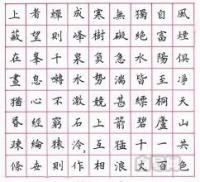 風煙俱淨天山共色
自富陽至桐廬一百
獨絕水皆縹碧千丈
無礙急湍甚箭猛浪
寒樹負勢競上互相
成峰泉水激石泠作
蟬則千囀不窮猿則
者望峯息心經綸世
上蔽在晝猶昏疎條